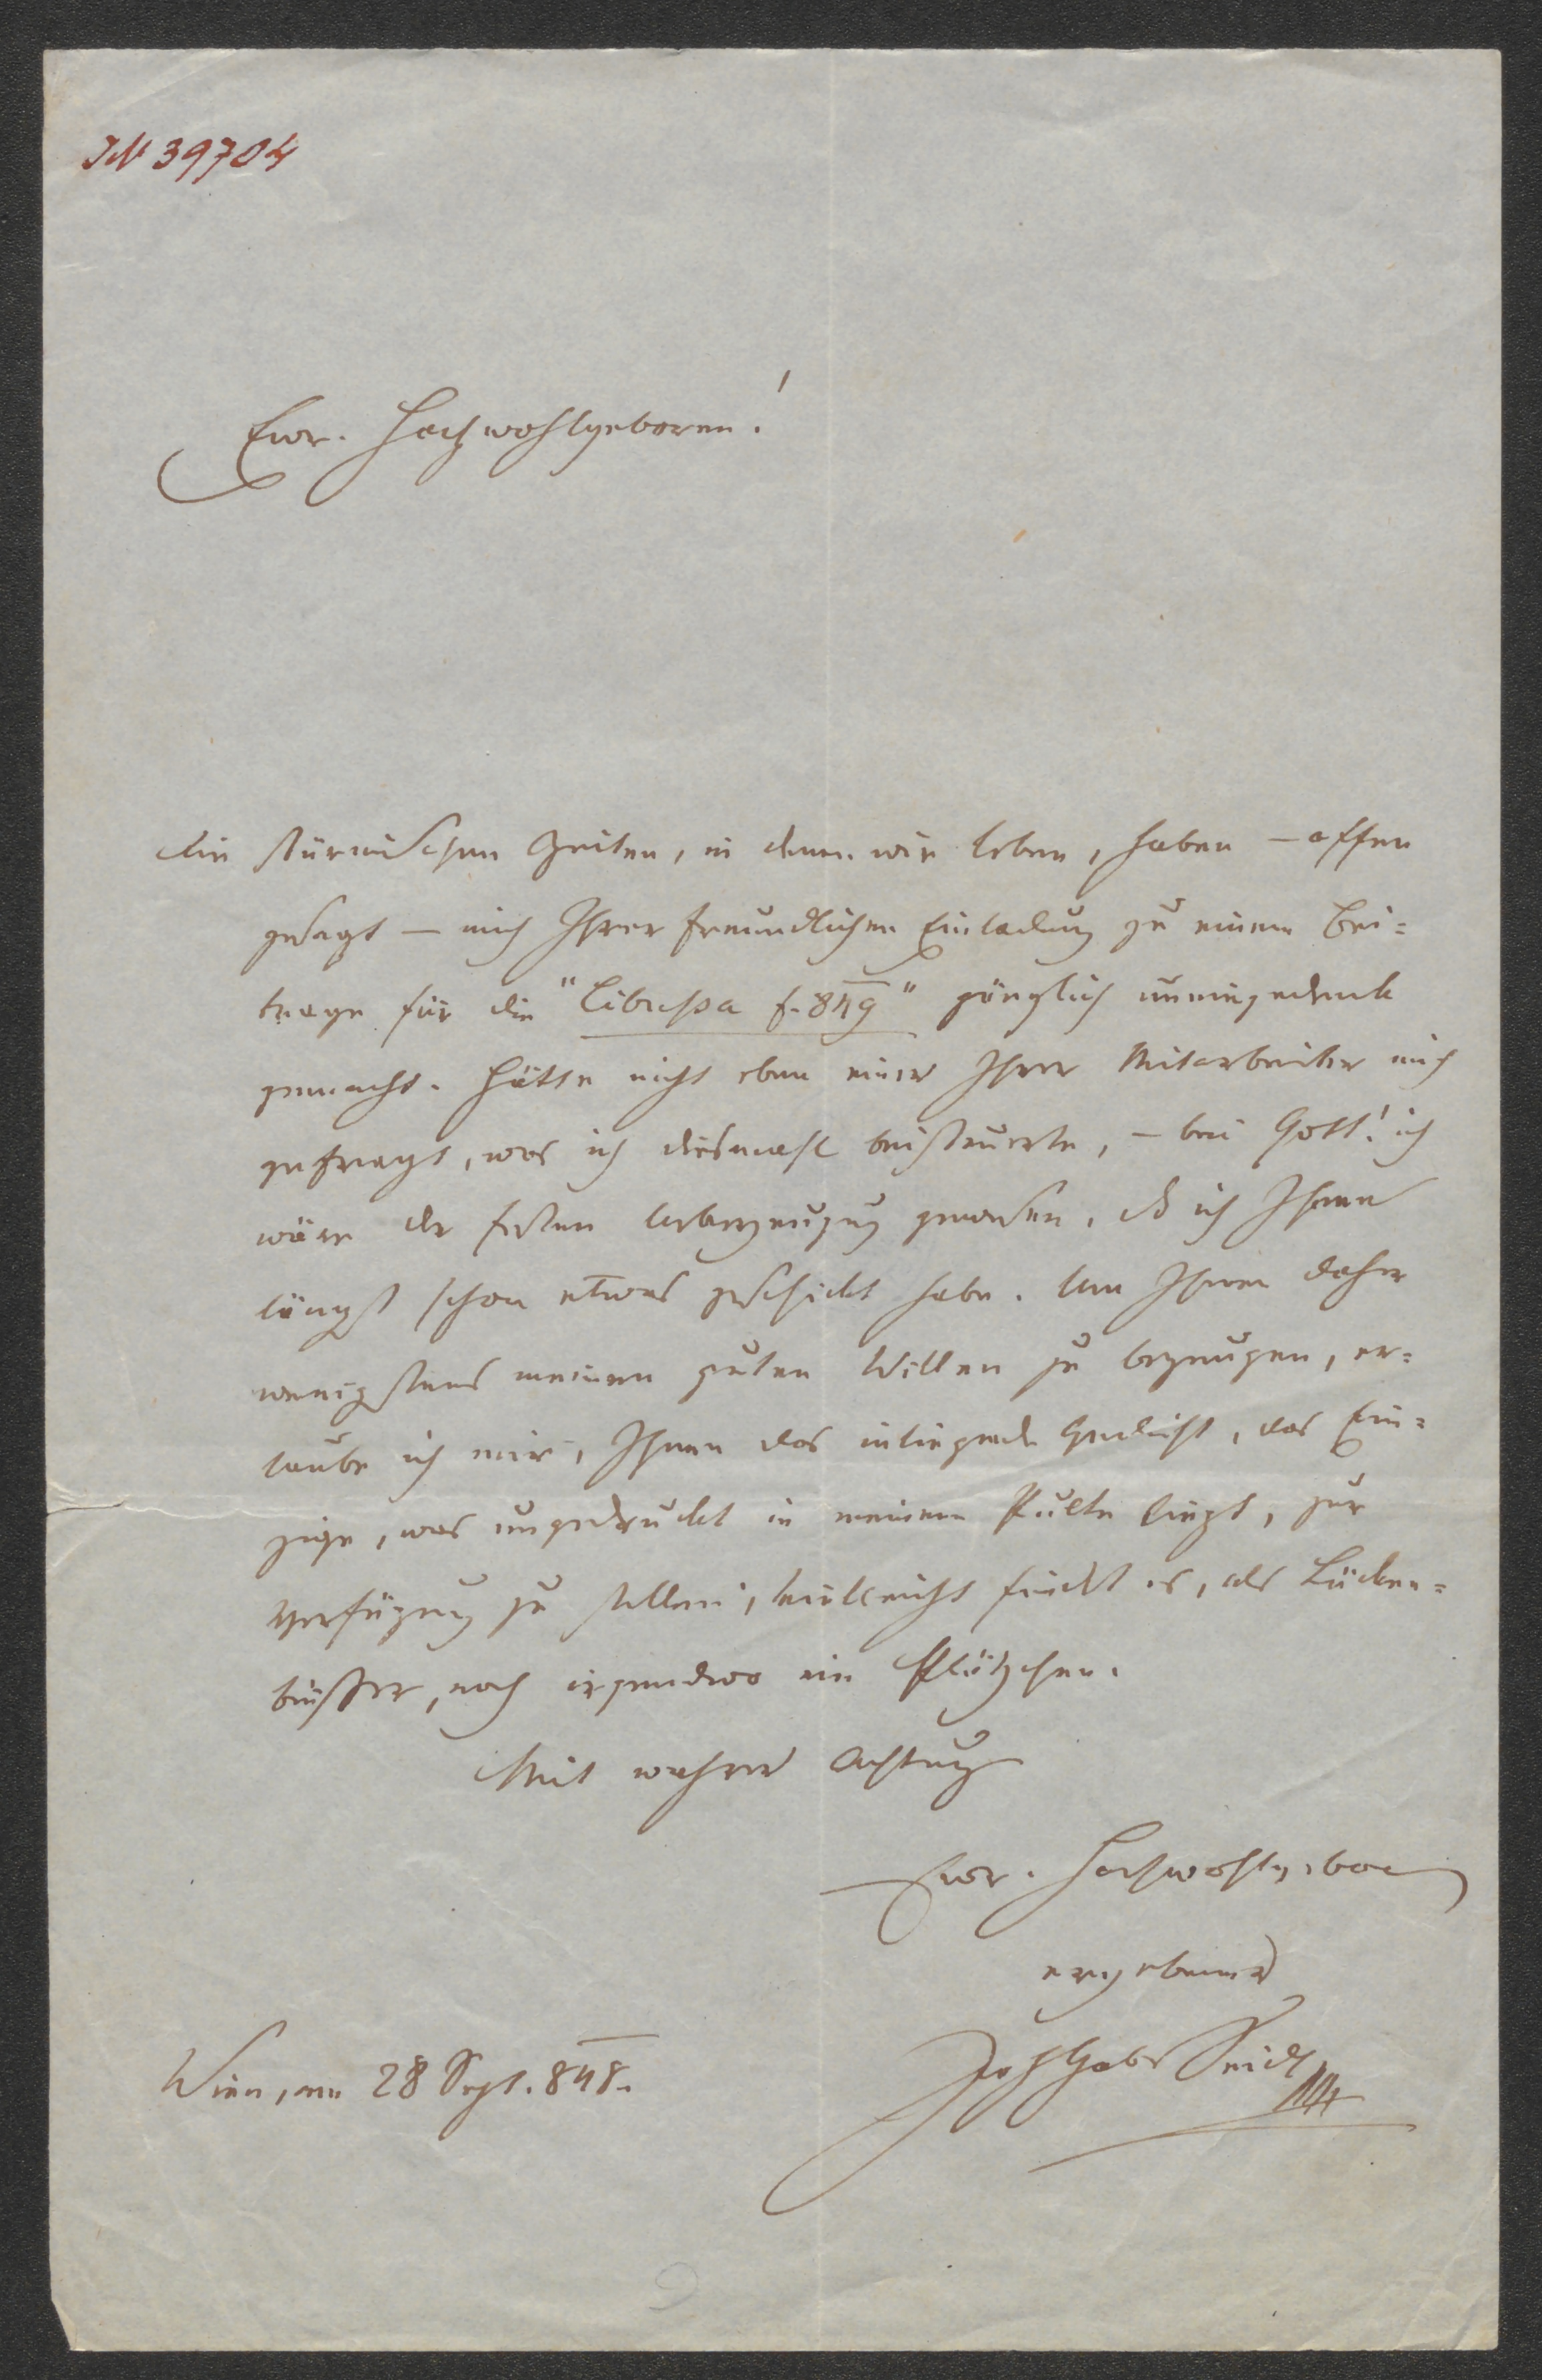 IN 39704
Euer. Hochwohlgeboren!
Die stürmischen Zeiten, in denen wir leben, haben – offen
gesagt – mich Ihrer freundlichen Einladung zu einem Bei=
trage für die "Libussa f. 849" gänzlich uneingedenk
gemacht. Hätte nicht eben einer Ihrer Mitarbeiter mich
gefragt, was ich diesmahl beisteuerte, – bei Gott! ich
wäre der festen Ueberzeugung gewesen, daß ich Ihnen
längst schon etwas geschickt habe. Um Ihnen daher
wenigstens meinen guten Willen zu bezeugen, er=
laube ich mir, Ihnen das inliegende Gedicht, das Ein=
zige, was ungedruckt in meinem Pulte liegt, zur
Verfügung zu stellen; vielleicht findet es, als Lücken=
büßer, noch irgendwo ein Plätzchen.
Mit wahrer Achtung
Euer. Hochwohlgeboren
ergebener
Joh Gabr Seidl
Wien, am 28 Sept. 848.